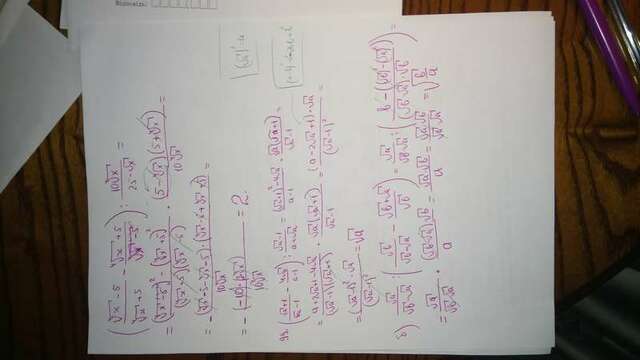 (⁴√x - 5 / ⁴√x + 5 - ⁴√x + 5 / ⁴√x - 5) : 10⁴√x / 25 - √x =
= (⁴√x - 5)² - (⁴√x + 5)² / (⁴√x + 5)(⁴√x - 5) · (5 - ⁴√x)(5 + ⁴√x) / 10⁴√x =
= - (⁴√x - 5 - ⁴√x - 5) · (⁴√x - 5 + ⁴√x + 5) / 10⁴√x =
= - (-10) · 2⁴√x / 10⁴√x = 2.
(√a)² = a
99. (√a + 1 / √a - 1 - 4√a / a - 1) : √a - 1 / a + √a = (√a + 1)² - 4√a / a - 1 · √a(√a + 1) / √a - 1 =
= a + 2√a + 1 - 4√a / (√a - 1)(√a + 1) · √a(√a + 1) / √a - 1 = (a - 2√a + 1) · √a / (√a - 1)² =
= (√a - 1)² · √a / (√a - 1)² = √a
б) √a / √b - √a : (√b / √b - √a - √b + √a / √b) = √a / √b - √a : (b - ((√b)² - (√a)²) / (√b - √a) · √b) =
= √a / √b - √a · (√b - √a) · √b / a = √a · √b / a = √a · √b / √a · √a = √b/a